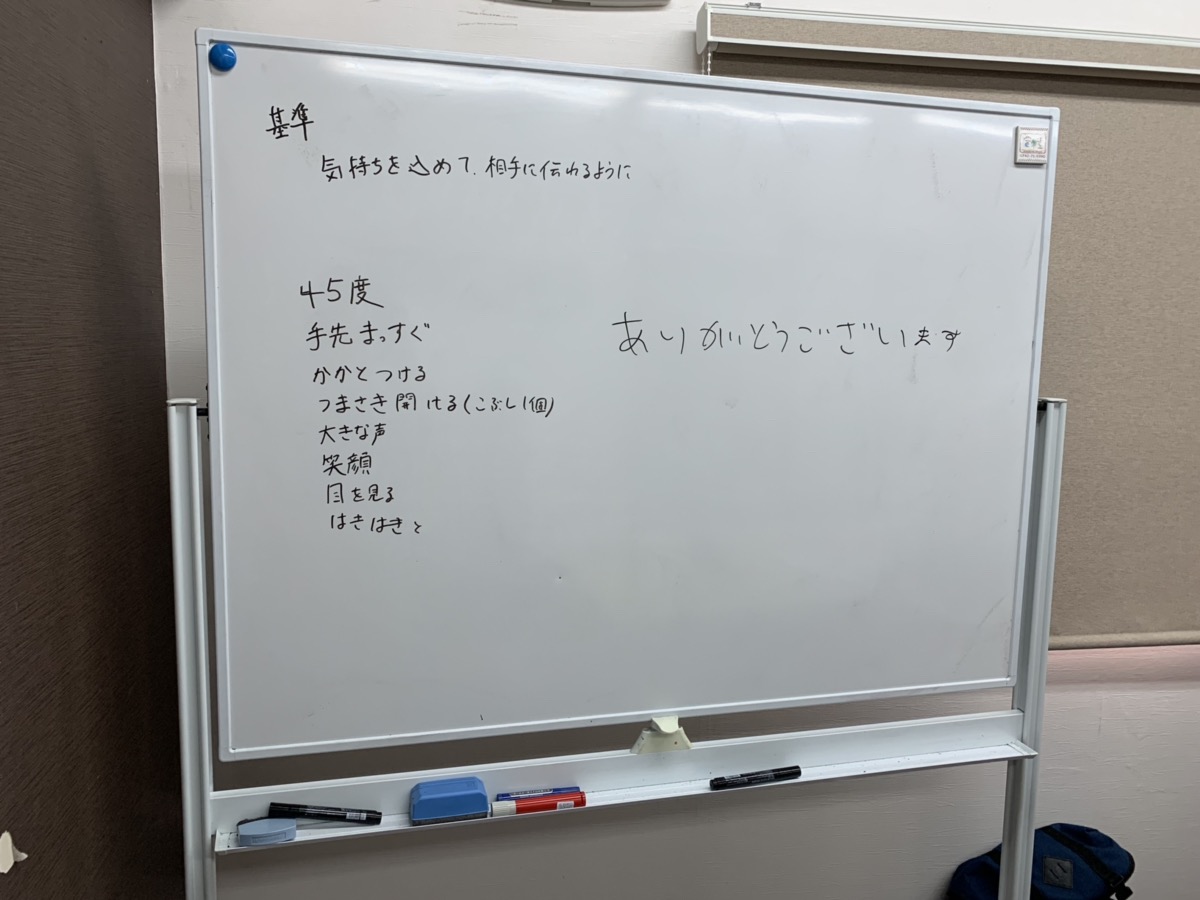 基準
気持ちを込めて、相手に伝わるように
45度
手先まっすぐ
かかとつける
つまさき開ける(こぶし1個)
大きな声
笑顔
目を見る
はきはきと
ありがとうございます